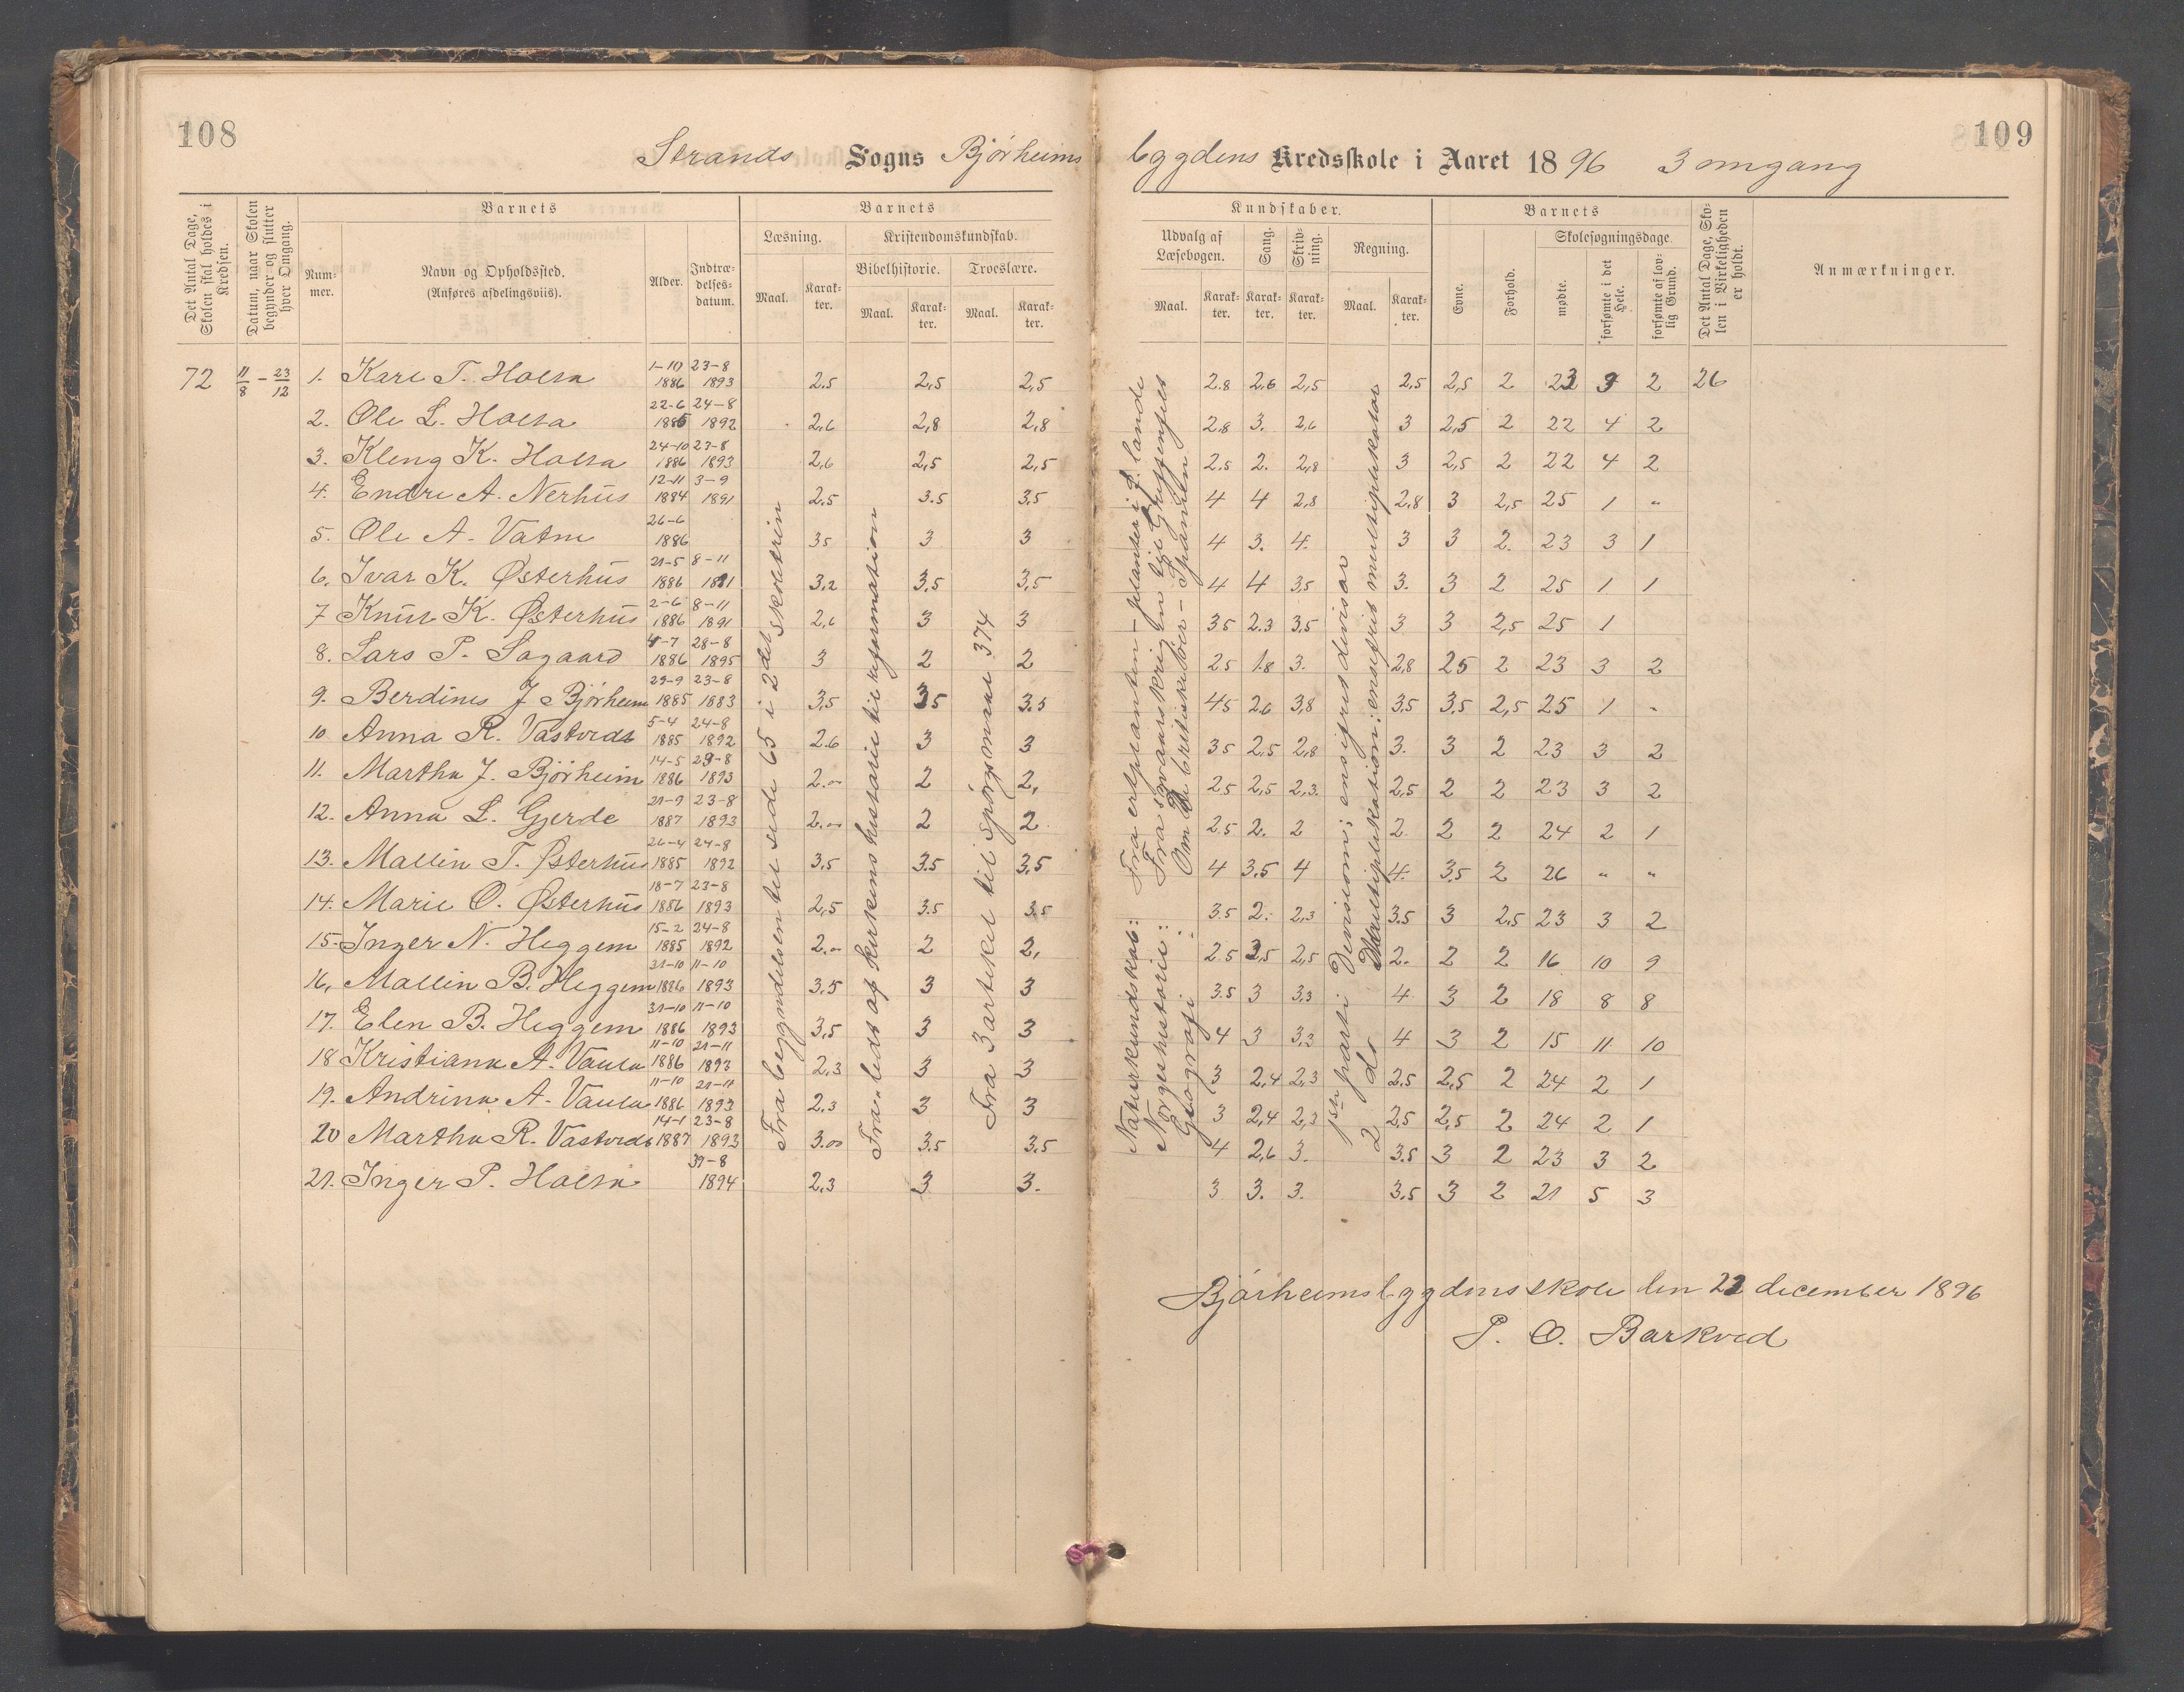 108
109
Strands Sogns Bjørheims bygdens Kredsskole i Aaret 1896 3 omgang
Det Antal Dage, Skolen skal holdes i Kredsen.
Datum, naar Skolen begynder og slutter hver Omgang.
Barnets
Nummer.
Navn og Opholdssted.
(Anføres afdelingsviis).
Alder.
Indtrædelsesdatum.
Barnets
Læsning.
Maal.
Karakter.
Kristendomskundskab.
Bibelhistorie.
Maal.
Karakter.
Troeslære.
Maal.
Karakter.
Kundskaber.
Udvalg af Læsebogen.
Maal.
Karakter.
Sang.
Karakter.
Skrivning.
Karakter.
Regning.
Maal.
Karakter.
Barnets
Evne.
Forhold.
Skolesøgningsdage.
mødte.
forsømte i det Hele.
forsømte af lovlig Grund.
Det Antal Dage, Skolen i Virkeligheden er holdt.
Anmærkninger.
72 11/8 – 23/12 1. Kare T. Holsa 1-10 1886 23-8 1893 2.5 2,5 2,5 2.8 2.6 2,5 2,5 2,5 2 23 3 2 26
2. Ole L. Holsa 22-6 1885 24-8 1892 2,6 2,8 2,8 2,8 3. 2,6 3 2,5 2 22 4 2
3. Kleng K. Holsa 24-10 1886 23-8 1893 2,6 2,5 2,5 2.5 2. 2,8 3 2,5 2 22 4 2
4. Endre A. Nerhus 12-11 1884 3-9 1891 2.5 3.5 3.5 4 4 2,8 2,8 3 2,5 25 1 "
5. Ole A. Vatne 26-6 1886 35 3 3 4 3. 4. 3 3 2. 23 3 1
6. Ivar K. Østerhus 21-5 1886 8-11 1891 3,2 3,5 3,5 4 4 3,5 3. 3 2 25 1 1
7 Knut K. Østerhus 2-6 1886 8-11 1891 2,6 3 3 3.5 2.3 3,5 3 3 2,5 25 1
8. Lars P. Sagaard 4-7 1886 28-8 1895 3 2 2 2.5 1.8 3. 2,8 25 2 23 3 2
9. Berdines J Bjørheim 29-9 1885 23-8 1883 3,5 35 3.5 45 2.6 3,8 3.5 3.5 2,5 25 1 -
10 Anna R. Vastveds 5-4 1885 24-8 1892 2.6 3 3 35 2,5 2,8 3. 3 2 23 3 2
11. Martha J. Bjørheim 14-5 1886 23-8 1893 2.00 2 2, 2.5 2,5 2,3. 2,5 2 2 23 3 2
12. Anna L. Gjerde 21-9 1887 23-8 1893 2.00 2 2 2.5 2. 2 2. 2 2 24 2 1
13. Mallin T. Østerhus 26-4 1885 24-8 1892 3,5 3.5 3,5 4 3.5 4 4. 3.5 2 26 " "
14. Marie O. Østerhus 18-7 1886 23-8 1893 2,5 3.5 3.5 3.5 2. 2,3 3.5 3 2.5 23 3 2
15. Inger N. Heggem 15-2 1885 24-8 1892 2.00 2 2, 2.5 3,5 2,5 2. 2 2 16 10 9
16, Mallin B. Heggem 31-10 1886 11-10 1893 3.5 3 3 3.5 3 3,3 4 3 2 18 8 8
17. Elen B. Heggem 31-10 1886 11-10 1893 3,5 3 3 4 3 3,3 4 3 2 15 11 10
18 Kristiana A. Vaula 11-10 1886 21-11 1893 2,3 3 3 3 2,4 2,3 2,5 2,5 2 24 2 1
19. Andrina A. Vaula 11-10 1886 21-11 1893 2.3 3 3 3 2,4 2,3 2,5 2,5 2 24 2 1
20 Martha R. Vastveds 14-1 1887 23-8 1893 3.00 3.5 3.5 4 2,6 3. 3.5 3 2 23 3 2
21. Inger P. Holsa 31-8 1894 2,3 3 3. 3 3. 3. 3,5 3 2 21 5 3
Fra begyndelsen til side 65 i 2det skoletrin
Fra leds af kirkens historie til reformation
Fra 3 artikel til spørgsmaal 374
Naturkundskab: Fra erteplanten – planter i f. lande
Norgeshistorie: Fra svenskekrigen til Griffenfelt
Geografi : Om De britiske øer – Spanien
1ste parti: Devision: ensifret divisor
2 do Multiplikation: ensifret multiplikator
Bjørheimsbygdens skole den 23 december 1896
P. O. Barkved